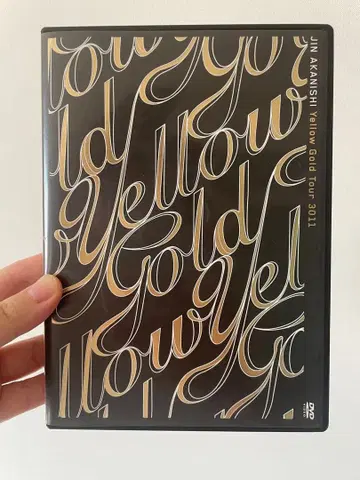 JIN AKANISHI Yellow Gold Tour 3011
low
ld Yellow
Gold Yel
llow Go
DVD
VIDEO